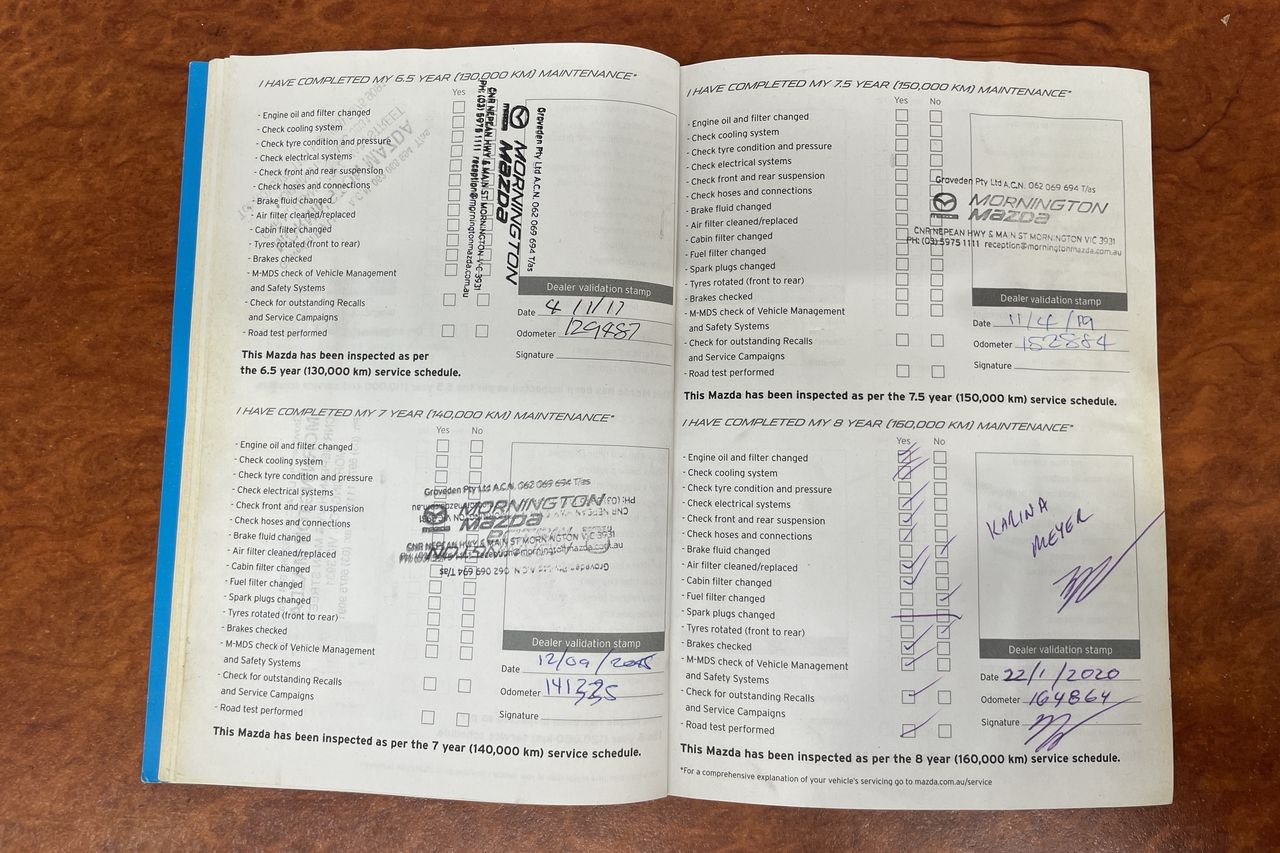 I HAVE COMPLETED MY 6.5 YEAR (130,000 KM) MAINTENANCE*
Yes
- Engine oil and filter changed
- Check cooling system
- Check tyre condition and pressure
- Check electrical systems
- Check front and rear suspension
- Check hoses and connections
- Brake fluid changed
- Air filter cleaned/replaced
- Cabin filter changed
- Tyres rotated (front to rear)
- Brakes checked
- M-MDS check of Vehicle Management
and Safety Systems
- Check for outstanding Recalls
and Service Campaigns
- Road test performed
Groveden Pty Ltd A.C.N. 062 069 694 T/as
MORNINGTON
mazda
mazda
CNR NEPEAN HWY & MAIN ST MORNINGTON VIC 3931
PH: (03) 5975 1111 reception@morningtonmazda.com.au
Dealer validation stamp
Date 4/11/17
Odometer 129487
Signature
This Mazda has been inspected as per
the 6.5 year (130,000 km) service schedule.
I HAVE COMPLETED MY 7 YEAR (140,000 KM) MAINTENANCE*
Yes No
- Engine oil and filter changed
- Check cooling system
- Check tyre condition and pressure
- Check electrical systems
- Check front and rear suspension
- Check hoses and connections
- Brake fluid changed
- Air filter cleaned/replaced
- Cabin filter changed
- Fuel filter changed
- Spark plugs changed
- Tyres rotated (front to rear)
- Brakes checked
- M-MDS check of Vehicle Management
and Safety Systems
- Check for outstanding Recalls
and Service Campaigns
- Road test performed
Groveden Pty Ltd A.C.N. 062 069 694 T/as
MORNINGTON
mazda
CNR NEPEAN HWY & MAIN ST MORNINGTON VIC 3931
reception@morningtonmazda.com.au
Groveden Pty Ltd A.C.N. 062 069 694 T/as
Dealer validation stamp
Date 12/09/
Odometer
Signature
This Mazda has been inspected as per the 7 year (140,000 km) service schedule.
I HAVE COMPLETED MY 7.5 YEAR (150,000 KM) MAINTENANCE*
Yes No
- Engine oil and filter changed
- Check cooling system
- Check tyre condition and pressure
- Check electrical systems
- Check front and rear suspension
- Check hoses and connections
- Brake fluid changed
- Air filter cleaned/replaced
- Cabin filter changed
- Fuel filter changed
- Spark plugs changed
- Tyres rotated (front to rear)
- Brakes checked
- M-MDS check of Vehicle Management
and Safety Systems
- Check for outstanding Recalls
and Service Campaigns
- Road test performed
Groveden Pty Ltd A.C.N. 062 069 694 T/as
MORNINGTON
mazda
CNR NEPEAN HWY & MAIN ST MORNINGTON VIC 3931
PH: (03) 5975 1111 reception@morningtonmazda.com.au
Dealer validation stamp
Date 11/4/19
Odometer 152884
Signature
This Mazda has been inspected as per the 7.5 year (150,000 km) service schedule.
I HAVE COMPLETED MY 8 YEAR (160,000 KM) MAINTENANCE*
Yes No
- Engine oil and filter changed
- Check cooling system
- Check tyre condition and pressure
- Check electrical systems
- Check front and rear suspension
- Check hoses and connections
- Brake fluid changed
- Air filter cleaned/replaced
- Cabin filter changed
- Fuel filter changed
- Spark plugs changed
- Tyres rotated (front to rear)
- Brakes checked
- M-MDS check of Vehicle Management
and Safety Systems
- Check for outstanding Recalls
and Service Campaigns
- Road test performed
KARINA
MEYER
Dealer validation stamp
Date 22/1/2020
Odometer 164864
Signature
This Mazda has been inspected as per the 8 year (160,000 km) service schedule.
*For a comprehensive explanation of your vehicle's servicing go to mazda.com.au/service